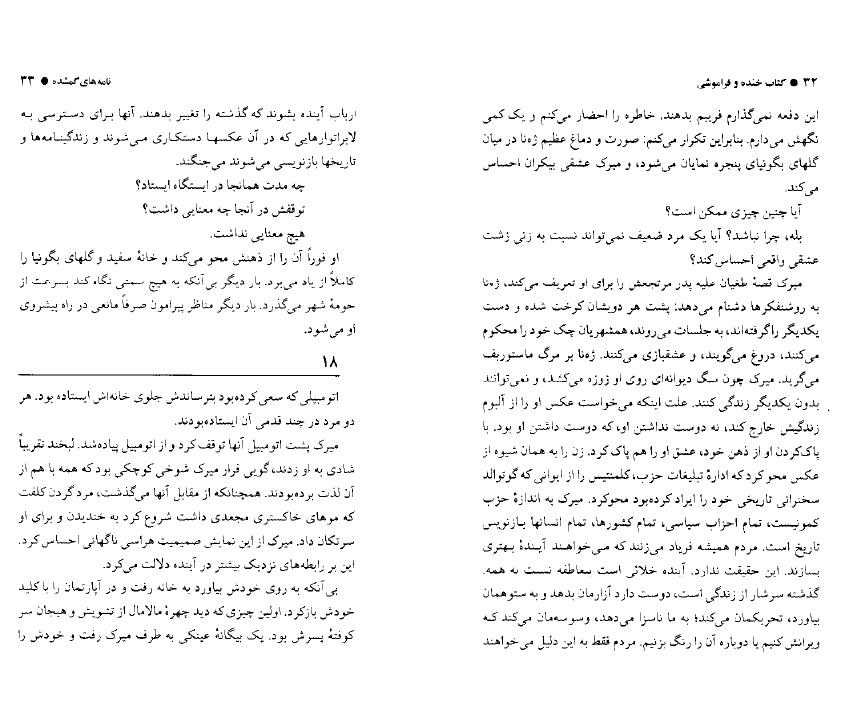 ۳۲ ● کتاب خنده و فراموشی
این دفعه نمی‌گذارم فریبم بدهند. خاطره را احضار می‌کنم و یک کمی
نگهش می‌دارم. بنابراین تکرار می‌کنم: صورت و دماغ عظیم ژه‌نا در میان
گلهای بگونیای پنجره نمایان می‌شود، و میرک عشقی بیکران احساس
می‌کند.
آیا چنین چیزی ممکن است؟
بله، چرا نباشد؟ آیا یک مرد ضعیف نمی‌تواند نسبت به زنی زشت
عشقی واقعی احساس کند؟
میرک قصهٔ طغیان علیه پدر مرتجعش را برای او تعریف می‌کند، ژه‌نا
به روشنفکرها دشنام می‌دهد: پشت هر دویشان کرخت شده و دست
یکدیگر را گرفته‌اند، به جلسات می‌روند، همشهریان چک خود را محکوم
می‌کنند، دروغ می‌گویند، و عشقبازی می‌کنند. ژه‌نا بر مرگ ماستوربف
می‌گرید. میرک چون سگ دیوانه‌ای روی او زوزه می‌کشد، و نمی‌توانند
بدون یکدیگر زندگی کنند. علت اینکه می‌خواست عکس او را از آلبوم
زندگیش خارج کند، نه دوست نداشتن او، که دوست داشتن او بود. با
پاک‌کردن او از ذهن خود، عشق او را هم پاک کرد. زن را به همان شیوه از
عکس محو کرد که ادارهٔ تبلیغات حزب، کلمنتیس را از ایوانی که گوتوالد
سخنرانی تاریخی خود را ایراد کرده‌بود محوکرد. میرک به اندازهٔ حزب
کمونیست، تمام احزاب سیاسی، تمام کشورها، تمام انسانها بازنویس
تاریخ است. مردم همیشه فریاد می‌زنند که می‌خواهند آیندهٔ بهتری
بسازند. این حقیقت ندارد. آینده خلائی است بی‌عاطفه نسبت به همه.
گذشته سرشار از زندگی است، دوست دارد آزارمان بدهد و به ستوهمان
بیاورد، تحریکمان می‌کند؛ به ما ناسزا می‌دهد، وسوسه‌مان می‌کند که
ویرانش کنیم یا دوباره آن را رنگ بزنیم. مردم فقط به این دلیل می‌خواهند
نامه‌های گمشده ● ۳۳
ارباب آینده بشوند که گذشته را تغییر بدهند. آنها برای دسترسی به
لابراتوارهایی که در آن عکسها دستکاری می‌شوند و زندگینامه‌ها و
تاریخها بازنویسی می‌شوند می‌جنگند.
چه مدت همانجا در ایستگاه ایستاد؟
توقفش در آنجا چه معنایی داشت؟
هیچ معنایی نداشت.
او فوراً آن را از ذهنش محو می‌کند و خانهٔ سفید و گلهای بگونیا را
کاملاً از یاد می‌برد. بار دیگر بی‌آنکه به هیچ سمتی نگاه کند بسرعت از
حومهٔ شهر می‌گذرد. بار دیگر مناظر پیرامون صرفاً مانعی در راه پیشروی
او می‌شود.
۱۸
اتومبیلی که سعی کرده‌بود بترساندش جلوی خانه‌اش ایستاده بود. هر
دو مرد در چند قدمی آن ایستاده‌بودند.
میرک پشت اتومبیل آنها توقف کرد و از اتومبیل پیاده‌شد. لبخند تقریباً
شادی به او زدند، گویی فرار میرک شوخی کوچکی بود که همه با هم از
آن لذت برده‌بودند. همچنانکه از مقابل آنها می‌گذشت، مرد گردن کلفت
که موهای خاکستری مجعدی داشت شروع کرد به خندیدن و برای او
سرتکان داد. میرک از این نمایش صمیمیت هراسی ناگهانی احساس کرد.
این بر رابطه‌های نزدیک بیشتر در آینده دلالت می‌کرد.
بی‌آنکه به روی خودش بیاورد به خانه رفت و در آپارتمان را با کلید
خودش بازکرد. اولین چیزی که دید چهرهٔ مالامال از تشویش و هیجان سر
کوفتهٔ پسرش بود. یک بیگانهٔ عینکی به طرف میرک رفت و خودش را